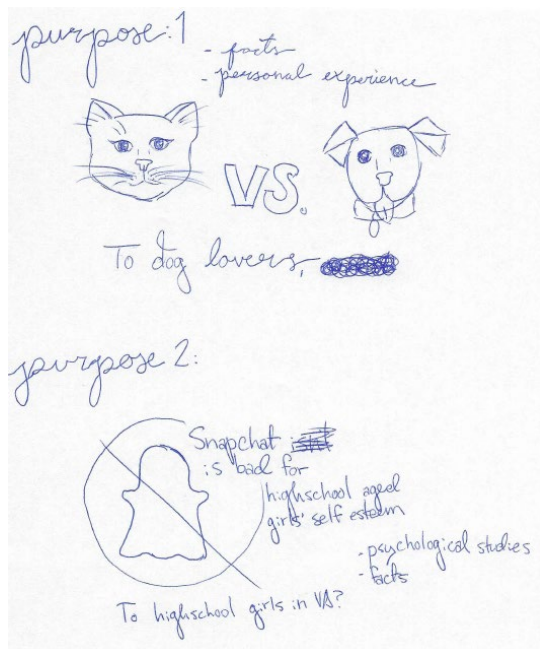 purpose: 1
- facts
- personal experience
VS.
To dog lovers,
purpose 2:
Snapchat
is bad for
highschool aged
girls' self esteem
- psychological studies
- facts
To highschool girls in VA?